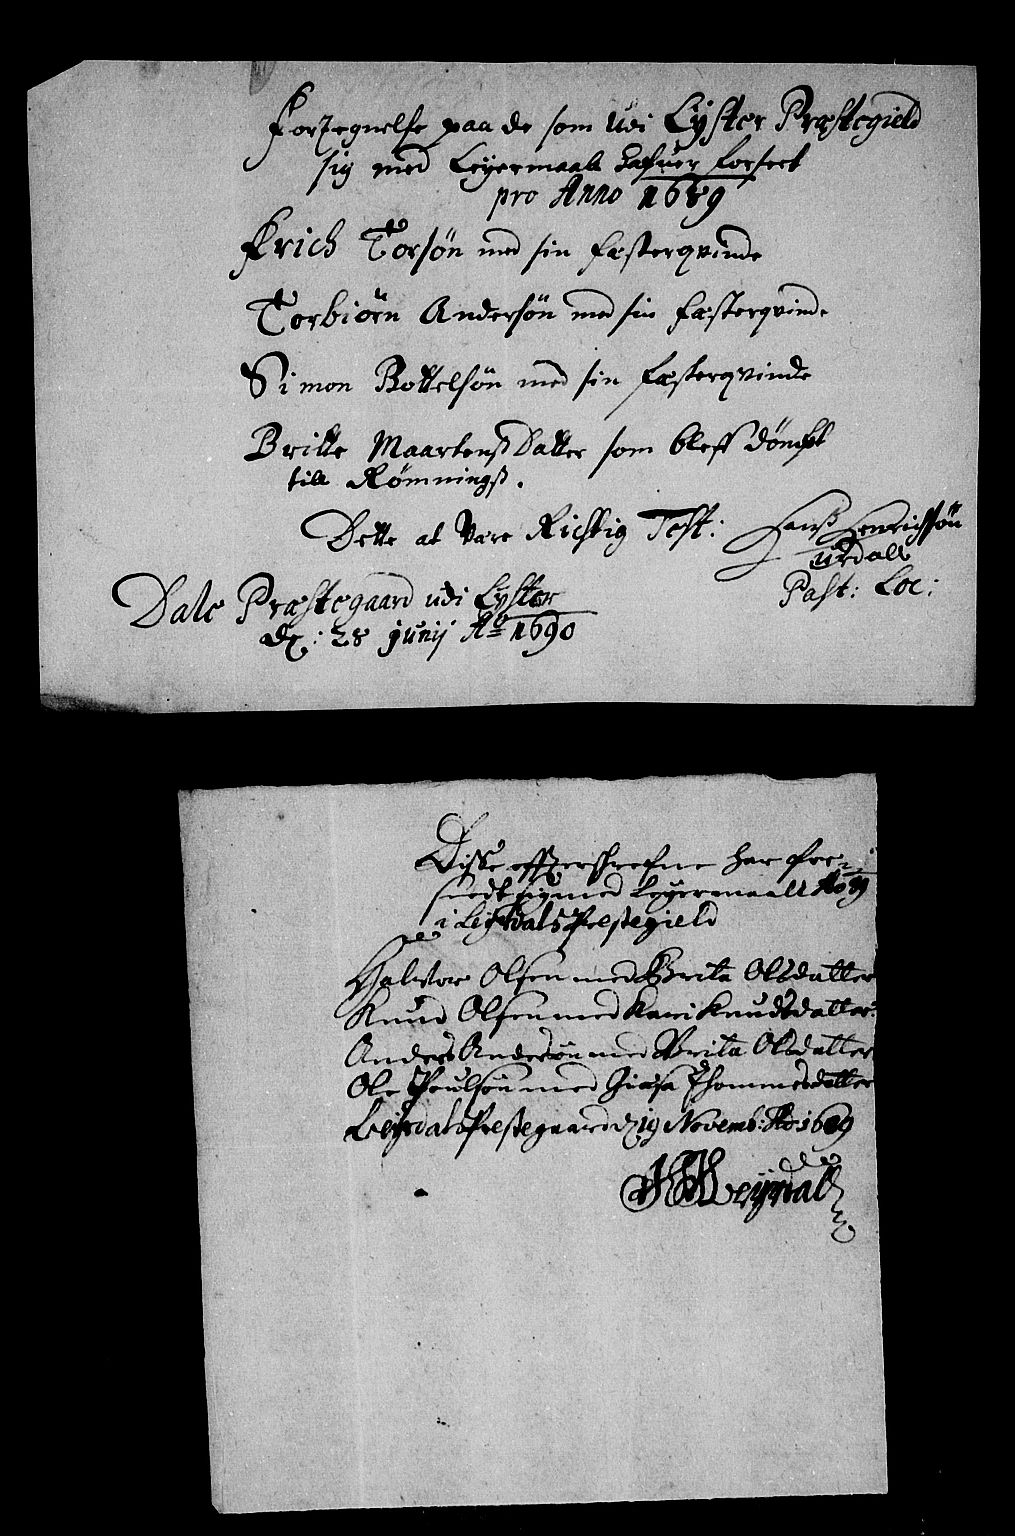 Fortegnelse paa de som udi Lyster Præstegield
sig med Leyermaall hafuer forseet
pro Anno 1689
Erich Torsøn med sin fæsterqvinde
Torbiörn Andersøn med sin fæsterqvinde
Simon Bottelsøn med sin fæsterqvinde
Britte Maartensdatter som bleff dömbt
till Rømningß.
Dette at være Richtig Test: Hanß Henrichssøn
Urdall
Past: Loc:
Dale Præstegaard udi Lyster
d: 28 Junij Ao 1690
Disse effterskrefne har
sig med Leyermaall Ao 89
i Leyrdals Prestegield
Halvor Olsen med Brita Olsdatter
Knud Olsen med Kari Knudsdatter
Anders Andersøn med Brita Olsdatter
Ole Poulsøn med Thommesdatter
Leyrdals Prestegaard d 19 Novemb: Ao 1689